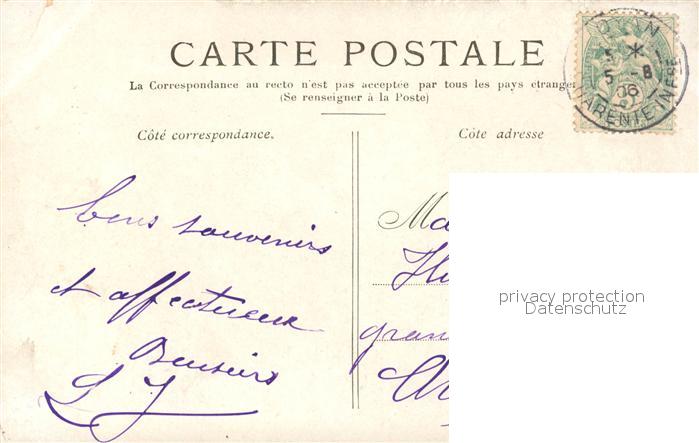 CARTE POSTALE
La Correspondance au recto n'est pas acceptée par tous les pays étranger
(Se renseigner à la Poste)
Côté correspondance.
Côté adresse
Bons souvenirs
et affectueux
Baisers
L J
Ma
gran
privacy protection
Datenschutz
5 *
5 -8
06
ARENTE-INFRE